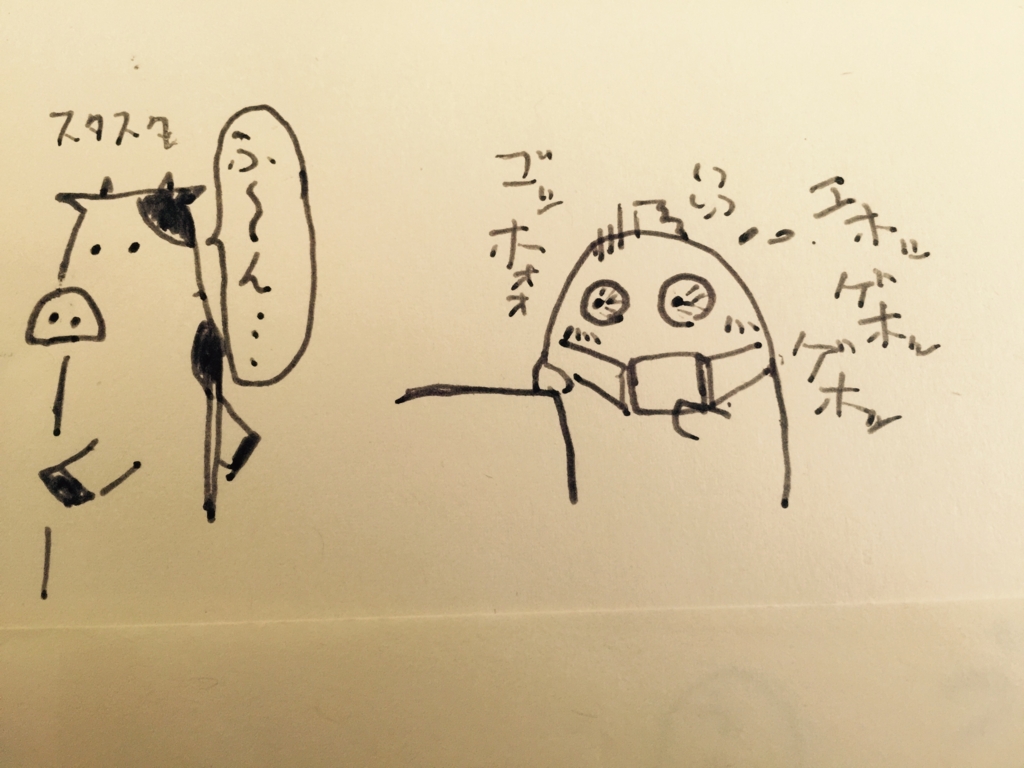 スタスタ
ふ〜ん...
ゴッホォォ
エホッ
ゲホッ
ゲホッ